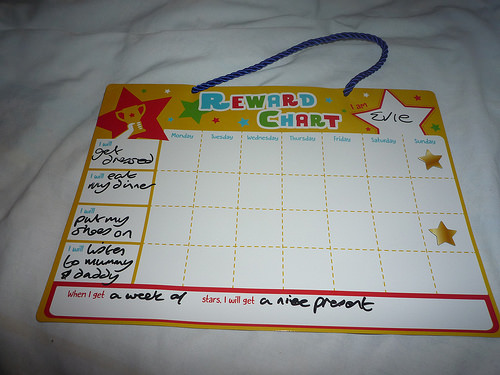 REWARD
CHART
I am
Evie
Monday Tuesday Wednesday Thursday Friday Saturday Sunday
I will
get
dressed
I will eat
my dinner
I will
put my
shoes on
I will listen
to mummy
& daddy
When I get a week of stars, I will get a nice present